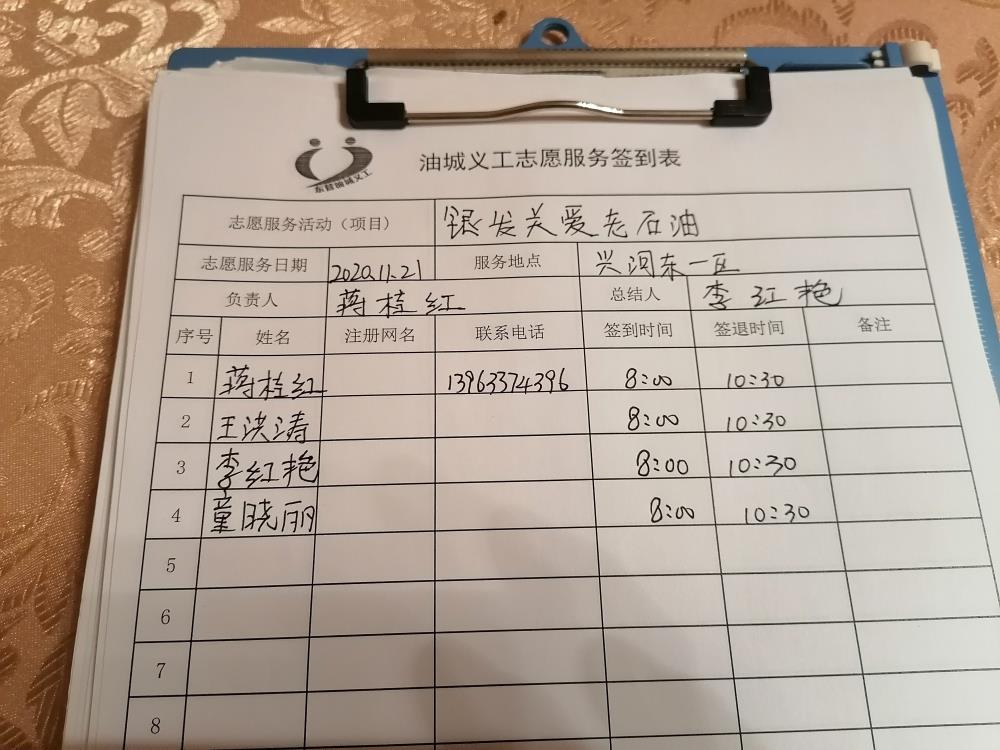 东营油城义工
油城义工志愿服务签到表
志愿服务活动（项目） 银发关爱老石油
志愿服务日期 2020.11.21 服务地点 兴河东一区
负责人 蒋桂红 总结人 李红艳
序号 姓名 注册网名 联系电话 签到时间 签退时间 备注
1 蒋桂红 13963374396 8:00 10:30
2 王洪涛 8:00 10:30
3 李红艳 8:00 10:30
4 童晓丽 8:00 10:30
5
6
7
8